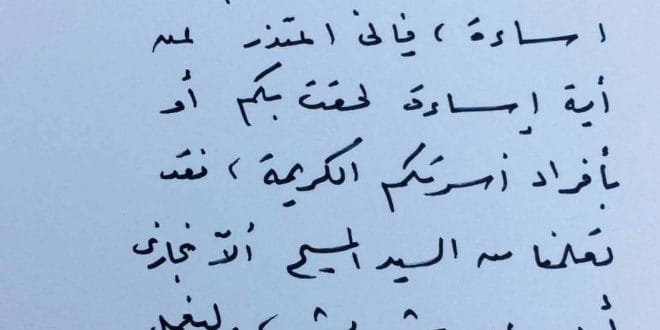 اساءة ، فإني اعتذر عن
أية إساءة لحقت بكم أو
بأفراد أسرتكم الكريمة ، فقد
تعلمنا من السيد المسيح ألاّ نجازى